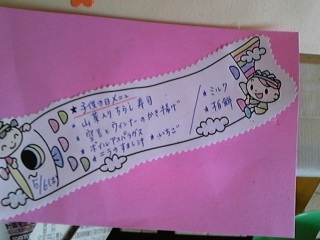 ★子供の日メニュー
• 山菜入りちらし寿司
• 空豆とウインナーのかき揚げ
• ボイルアスパラガス
• ニラのすまし汁
• いちご
• ミルク
• 柏餅
5/6(